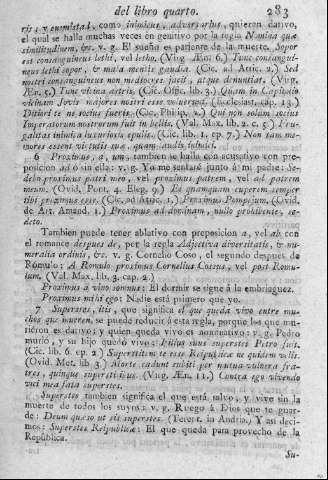 del libro quarto. 283
ris, y cumulatal, como, insolens, adversarius, quieren dativo,
el qual se halla muchas veces en genitivo por la regla Nomina quæ
similitudinem, &c. v. g. El sueño es pariente de la muerte. Sopor
est consanguineus lethi, vel letho. (Virg. Æn. 6.) Tunc consangui-
neus lethi sopor, & mala mentis gaudia. (Cic. ad Attic. 2.) Sed
nostri consanguineos non mediocres
Æn. 5.) Tunc vicina astris. (Cic. Offic. lib. 3.) Quam in Capitolio
vicinam Jovis majores nostri esse voluerunt. (Ecclesiast. cap. 13.)
Ditiori te ne socius fueris. (Cic. Philip. 2.) Qui non solum socius
Imperatorum nostrorum fuit in bellis. (Val. Max. lib. 2. c. 5.) Fru-
galitas inimica luxuriosis epulis. (Cic. lib. 1. ep. 7.) Non tam me-
mores essent virtutis tuæ, quam laudis inimici.
6 Proximus, a, um, tambien se halla con acusativo con pre-
posicion ad o sin ella: v. g. Yo me sentaré junto á mi padre: Se-
debo proximus patri meo, vel proximus patrem, vel ad patrem
meum. (Ovid. Pont. 4. Eleg. 9.) Et quamquam cuperem semper
tibi proximus esse. (Cic. ad Attic. 1.) Proximus Pompejum. (Ovid.
de Art. Amand. 1.) Proximus ad dominam, nullo prohibente, se-
deto.
Tambien puede tener ablativo con preposicion a, vel ab con
el romance despues de, por la regla Adjectiva diversitatis, & nu-
meralia ordinis, &c. v. g. Cornelio Coso, el segundo despues de
Rómulo: A Romulo proximus Cornelius Cossus, vel post Romu-
lum. (Val. Max. lib. 3. cap. 2.)
Proximus a vino somnus: El dormir se sigue á la embriaguez.
Proximus mihi ego: Nadie está primero que yo.
7 Superstes, itis, que significa el que queda vivo entre mu-
chos que mueren, se puede reducir á esta regla, porque los que mu-
rieron es dativo; y quien queda vivo es nominativo: v. g. Pedro
murió, y su hijo quedó vivo: Filius suus superstes Petro fuit.
(Cic. lib. 6. ep. 2) Superstitem te esse Reipublicæ ne quidem velis.
(Ovid. Met. lib 3.) Morte cadunt subiti per mutua vulnera fra-
tres; quinque superstitibus. (Virg. Æn. 11.) Contra ego vivendo
vici mea fata superstes.
Superstes tambien significa el que está salvo, y vive sin la
muerte de todos los suyos: v. g. Ruego á Dios que te guar-
de: Deum quæso ut sis superstes. (Terent. in Andria.) Y asi deci-
mos: Superstes Reipublicæ: El que queda para provecho de la
República.
Su-